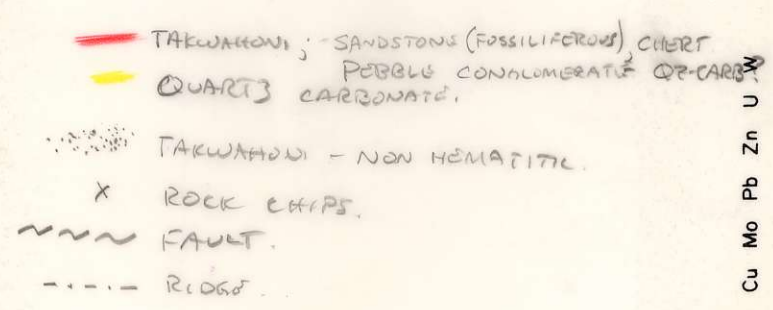 TAKWAHONI; - SANDSTONE (FOSSILIFEROUS), CHERT
PEBBLE CONGLOMERATE QZ-CARB?
QUARTZ CARBONATE.
TAKWAHONI - NON HEMATITIC.
ROCK CHIPS.
FAULT.
RIDGE.
Cu Mo Pb Zn U W